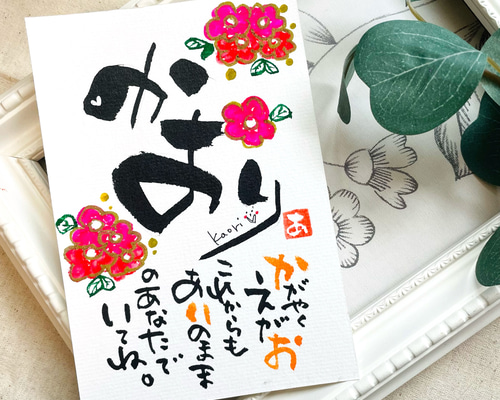 かおり
kaori
あ
かがやく
えがお
これからも
ありのまま
のあなたで
いてね。